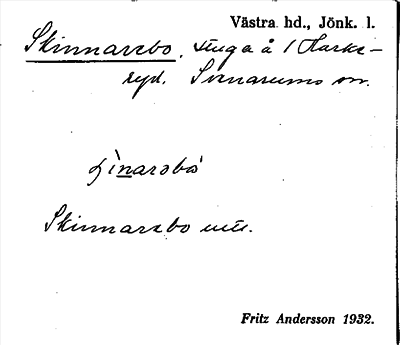 Västra hd., Jönk. l.
Skinnarebo, stuga å 1 Harke-
ryd. Svenarums sn.
Skinnarebo
Fritz Andersson 1932.